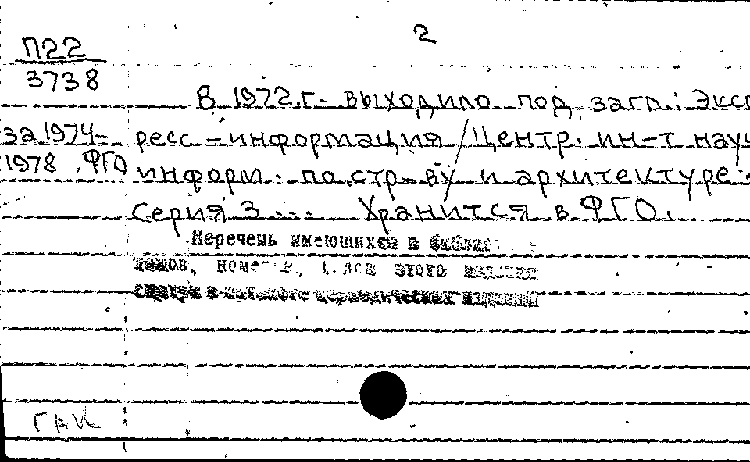 2
П22
3738
за 1974-
1978 ФГО
В 1972 г. выходило под загл.: Эксп
ресс-информация / Центр. ин-т науч
информ. по стр-ву и архитектуре.
Серия 3... Хранится в ФГО.
Перечень имеющихся в библио
номе этого издания
каталоге периодических изданий
ГАК